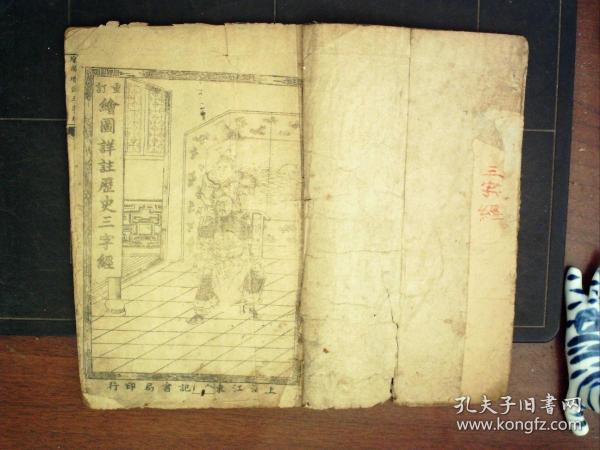 重訂
繪圖詳註歷史三字經
上海江東茂記書局印行
三字經
孔夫子旧书网
www.kongfz.com